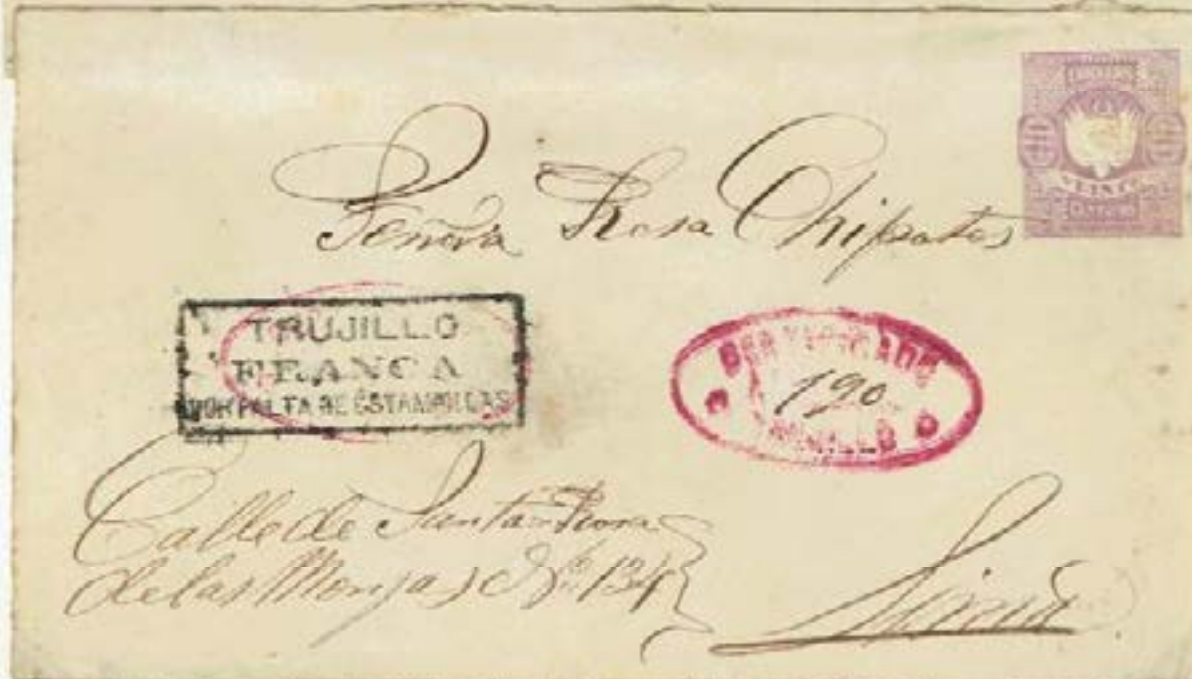 CORREOS
VEINTE
CENTAVOS
Señora Rosa Chipoutes
TRUJILLO
FRANCA
POR FALTA DE ESTAMPILLAS
CERTIFICADO
190
TRUJILLO
Calle de Santa Rosa
de las Monjas Nº 134
Lima